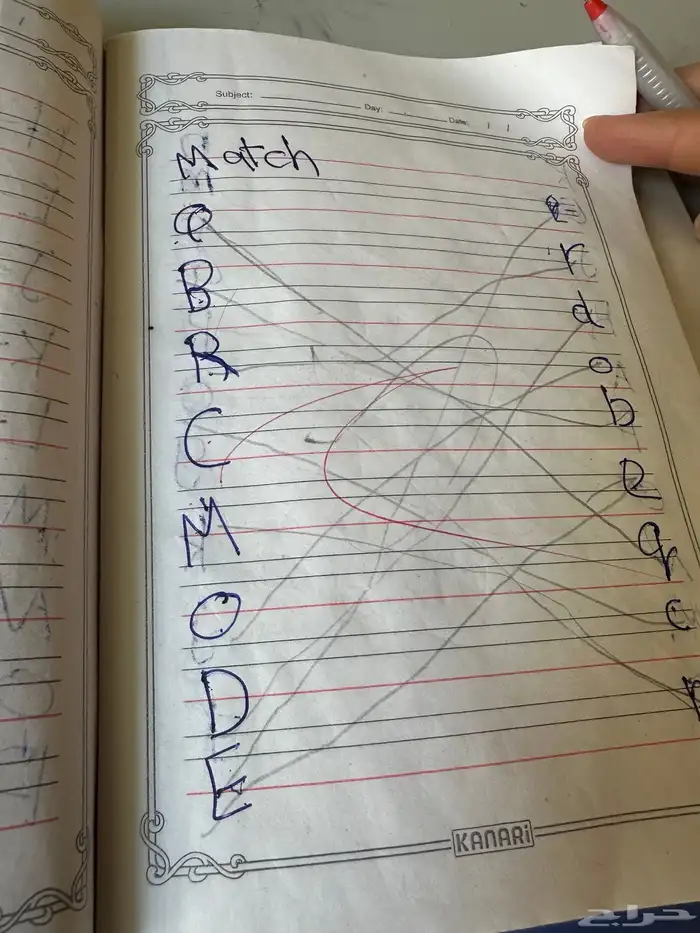 Subject: Day: Date: / /
Match
Q
B r
d
R o
C b
e
M q
O c
D
E
KANARi
حراج